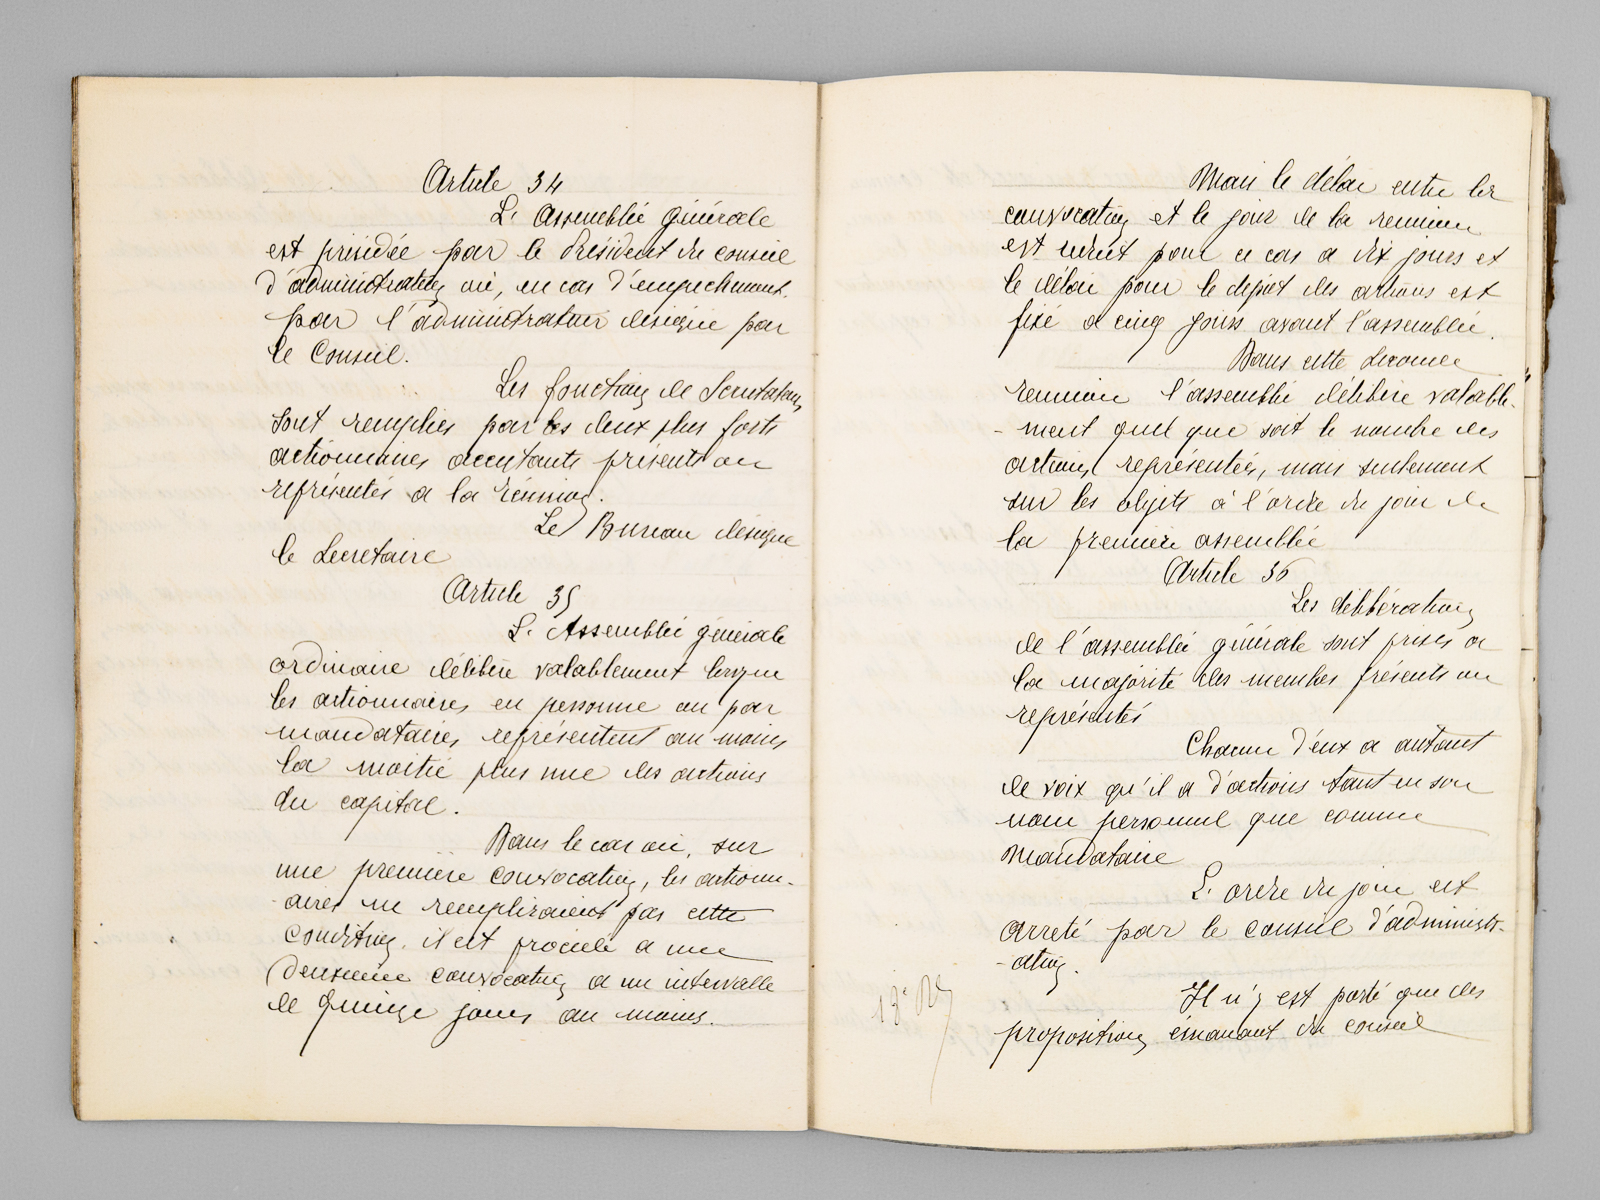 Article 34
L'Assemblée générale
est présidée par le Président du conseil
d'administration ou, en cas d'empêchement,
par l'administrateur désigné par
le Conseil.
Les fonctions de Scrutateurs
sont remplies par les deux plus forts
actionnaires acceptants présents ou
représentés a la réunion.
Le Bureau désigne
le Secretaire
Article 35
L'Assemblée générale
ordinaire délibère valablement lorsque
les actionnaires en personne ou par
mandataires représentent au moins
la moitié plus une des actions
du capital.
Dans le cas où, sur
une première convocation, les actionn-
-aires ne rempliraient pas cette
condition, il est procédé a une
deuxième convocation a un intervalle
de quinze jours au moins.
Mais le délai entre les
convocations et le jour de la reunion
est réduit pour ce cas a dix jours et
le délai pour le dépôt des actions est
fixé a cinq jours avant l'assemblée.
Dans cette seconde
reunion l'assemblée délibère valable-
-ment quel que soit le nombre des
actions représentées, mais seulement
sur les objets à l'ordre du jour de
la première assemblée
Article 36
Les délibérations
de l'assemblée générale sont prises a
la majorité des membres présents ou
représentés
Chacun d'eux a autant
de voix qu'il a d'actions tant en son
nom personnel que comme
mandataire
L'ordre du jour est
arreté par le conseil d'administr-
-ation.
Il n'y est porté que des
propositions émanant du conseil